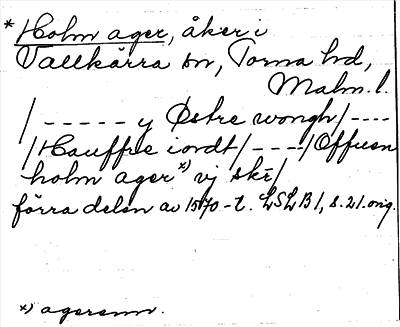 * Holm ager, åker i
Vallkärra sn, Torna hd,
Malm. l.
/ ----- y Østre wongh/----
/Hauffue iordt/----/Offuen
holm ager x) vj skr/
förra delen av 1570-t. LSLB1, s.21. orig.
x) agerenn.